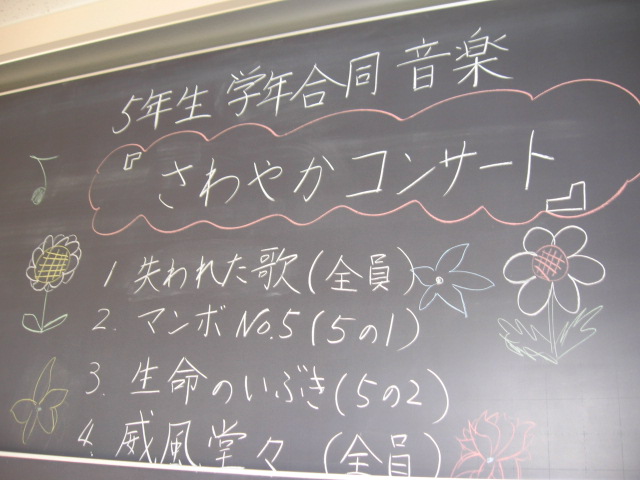 5年生 学年合同 音楽
『さわやかコンサート』
1 失われた歌(全員)
2. マンボNo.5(5の1)
3. 生命のいぶき(5の2)
4. 威風堂々 (全員)